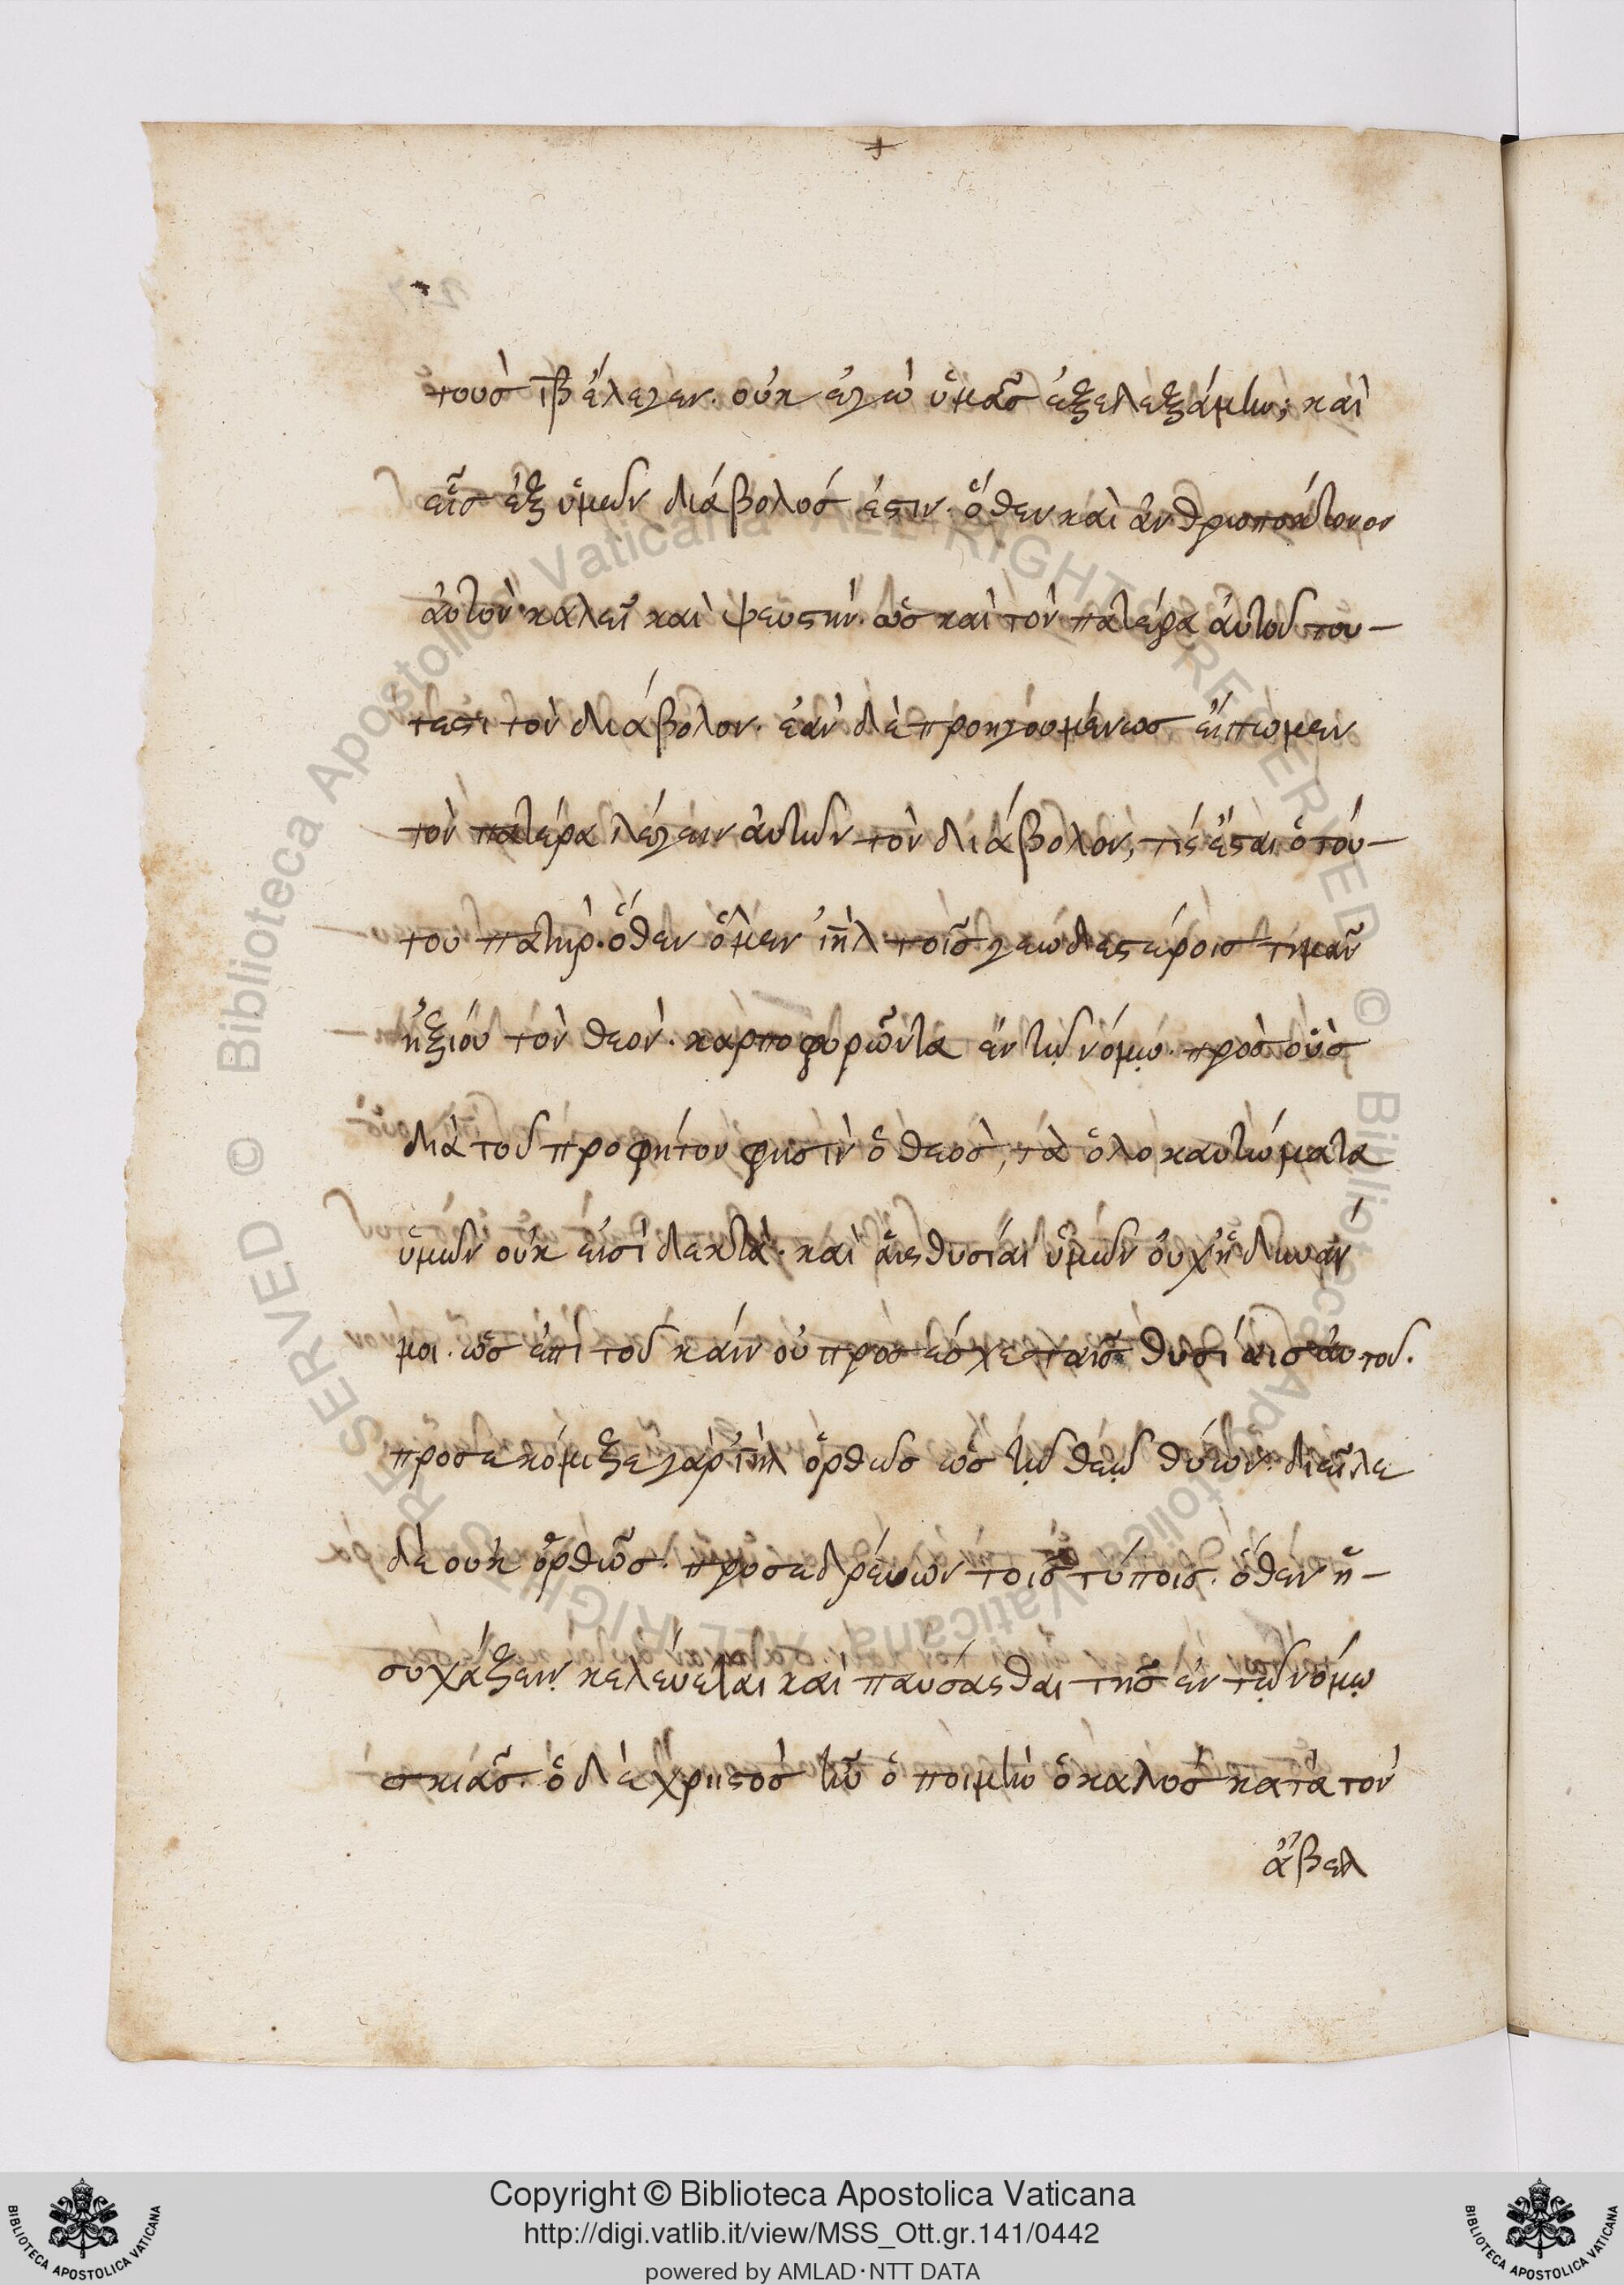 +
τοὺσ ιβ ἔλεγεν· οὐκ ἐγὼ ὑμᾶσ ἐξελεξάμην; καὶ
εἷσ ἐξ ὑμῶν διάβολόσ ἐστιν· ὅθεν καὶ ἀνθρωποκτόνον
ἀυτὸν καλεῖ καὶ ψεύστην· ὡσ καὶ τὸν πατέρα ἀυτοῦ του–
τεστι τὸν διάβολον· ἐὰν δὲ προηγουμένωσ ἔιπωμεν
τὸν πατέρα λέγειν ἀυτῶν τὸν διάβολον, τίσ ἔσται ὁ τού–
του πατήρ· ὅθεν ὁ μεν ιηλ τοῖσ γεωδεστέροισ τιμᾶν
ἠξίου τὸν θεὸν· καρποφορῶντα ἐν τῷ νόμῳ· πρὸσ οὓσ
διὰ τοῦ προφήτου φησὶν ὁ θεὸσ, τὰ ὁλοκαυτώματα
ὑμῶν οὐκ εἰσὶ δεκτὰ· καὶ ἁι θυσίαι ὑμῶν ὀυχ ἥδυναν
μοι· ὡσ ἐπὶ τοῦ κάιν οὐ προσέσχε ταῖσ θυσίαισ ἀυτοῦ.
προσεκόμιζε γὰρ ιηλ ὀρθῶσ ὡσ τῷ θεῷ θύων· διεῖλε
δὲ οὐκ ὀρθῶσ· προσεδρέυων τοῖσ τύποισ· ὅθεν ἡ–
συχάζειν κελέυεται καὶ παύσασθαι τῆσ ἐν τῷ νόμῳ
σκιᾶσ· ὁ δὲ χριστὸσ ἦν ὁ ποιμὴν ὁ καλὸσ κατὰ τὸν
ἄβελ
Copyright © Biblioteca Apostolica Vaticana
http://digi.vatlib.it/view/MSS_Ott.gr.141/0442
powered by AMLAD·NTT DATA